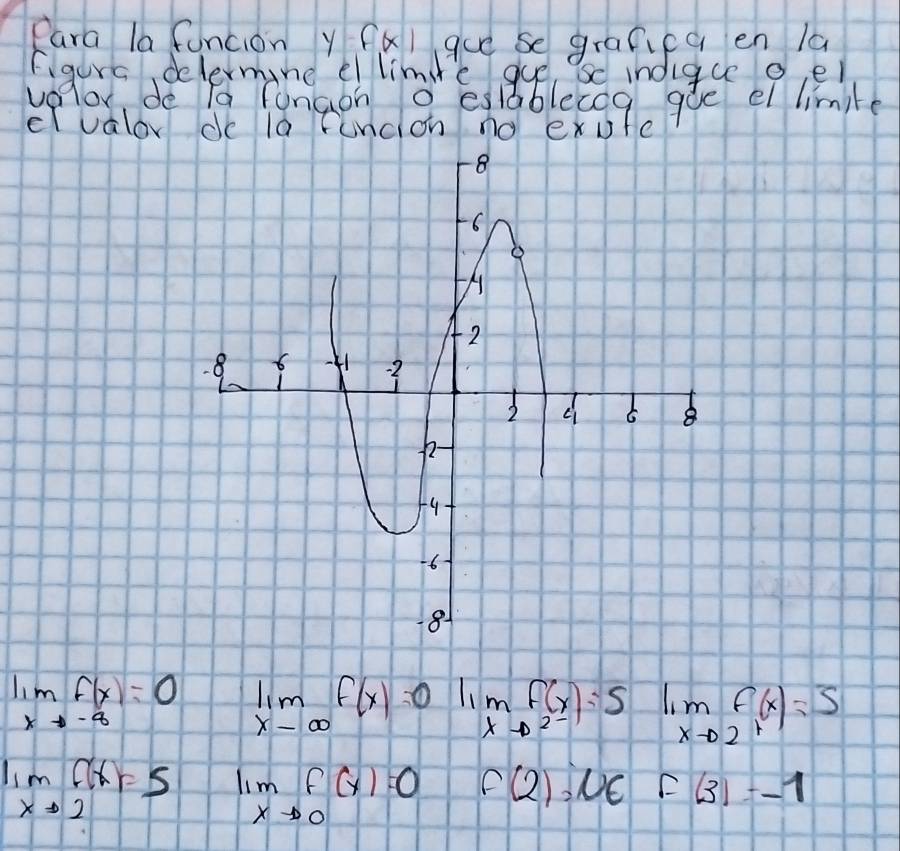 Para la función y f(x) que se grafica en la
figura, determine el límite que se indique o el
valor de la función o establezca que el límite
el valor de la función no existe
8
6
4
2
-8 6 -4 -2
2 4 6 8
-2
-4
-6
-8
lim f(x) = 0 lim f(x) = 0 lim f(x) = 5 lim f(x) = 5
x → -∞ x → ∞ x → 2⁻ x → 2⁺
lim f(x) = 5 lim f(x) = 0 f(2) = NE f(3) = -1
x → 2 x → 0